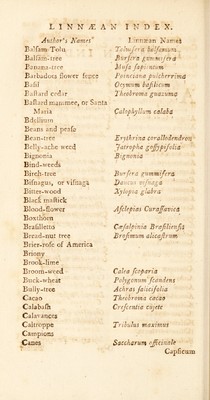 LINNÆAN INDEX.
Author's Names Linnæan Names
Balsam Tolu Toluifera balsamum
Balsam-tree Bursera gummifera
Banana-tree Musa sapientum
Barbadoes flower fence Poinciana pulcherrima
Basil Ocymum basilicum
Bastard cedar Theobroma guazuma
Bastard mammee, or Santa
Maria Calophyllum calaba
Bdellium
Beans and pease
Bean-tree Erythrina corallodendron
Belly-ache weed Jatropha gossypifolia
Bignonia Bignonia
Bind-weeds
Birch-tree Bursera gummifera
Bisnagus, or visnaga Daucus visnaga
Bitter-wood Xylopia glabra
Black mastick
Blood-flower Asclepias Curassavica
Boxthorn
Brasilletto Cæsalpinia Brasiliensis
Bread-nut tree Brosimum alicastrum
Brier-rose of America
Briony
Brook-lime
Broom-weed Calea scoparia
Buck-wheat Polygonum scandens
Bully-tree Achras salicifolia
Cacao Theobroma cacao
Calabash Crescentia cujete
Calavances
Caltroppe Tribulus maximus
Campions
Canes Saccharum officinale
Capsicum